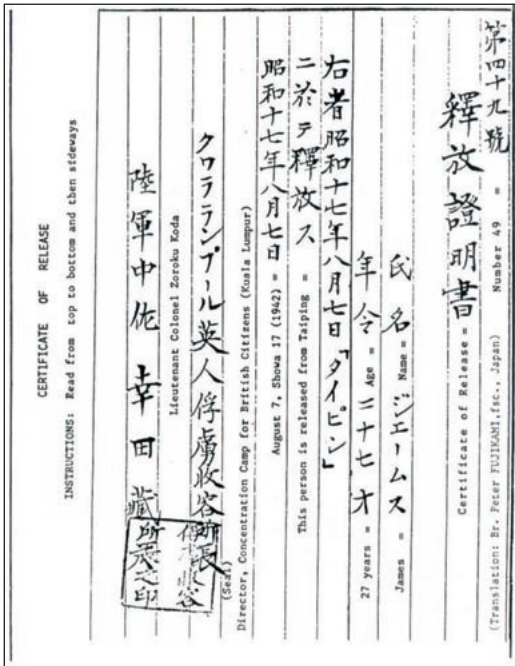 CERTIFICATE OF RELEASE
INSTRUCTIONS: Read from top to bottom and then sideways
第四十九號
Number 49 =
(Translation: Br. Peter FUJIKAMI,fsc., Japan)
釋放證明書
Certificate of Release =
氏名 ジエームス
James = Name =
年令 二十七才
27 years = Age =
右者昭和十七年八月七日「タイピン」
ニ於テ釋放ス
This person is released from Taiping =
昭和十七年八月七日
August 7, Showa 17 (1942) =
クワラランプール英人俘虜收容所長
Director, Concentration Camp for British Citizens (Kuala Lumpur)
(Seal)
陸軍中佐 幸田藏
Lieutenant Colonel Zoroku Koda